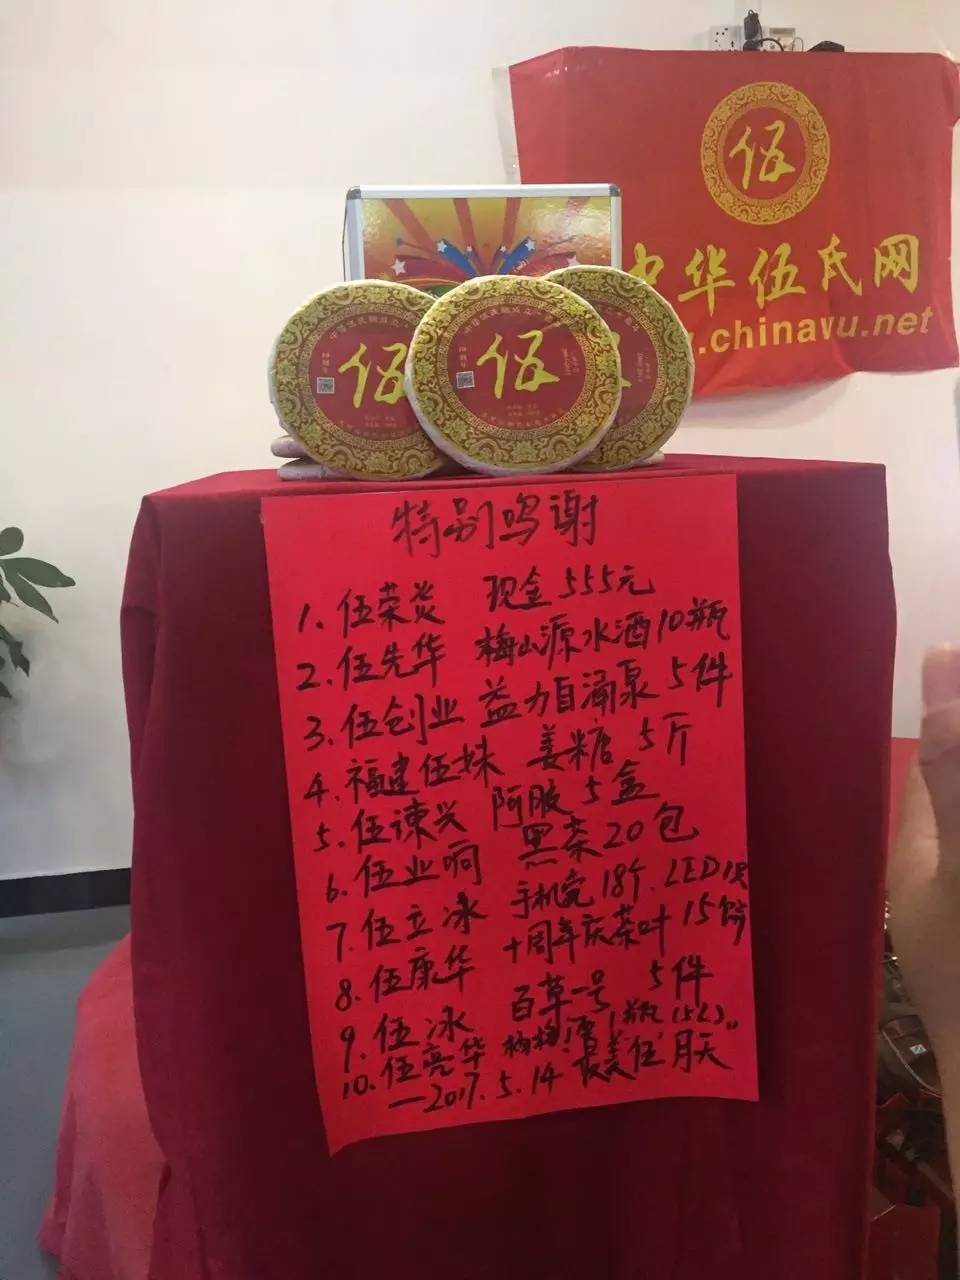 伍
中华伍氏网
.chinawu.net
伍
伍
特别鸣谢
1. 伍荣炎 现金555元
2. 伍先华 梅山源水酒10瓶
3. 伍创业 益力自涌泉5件
4. 福建伍妹 姜糖5斤
5. 伍谏兴 阿胶5盒
6. 伍业响 黑茶20包
7. 伍立冰 手机壳18个、LED1只
8. 伍康华 十周年庆茶叶15饼
9. 伍冰 百草一号5件
10. 伍亮华 1瓶(5L)
—2017.5.14 最美伍月天"